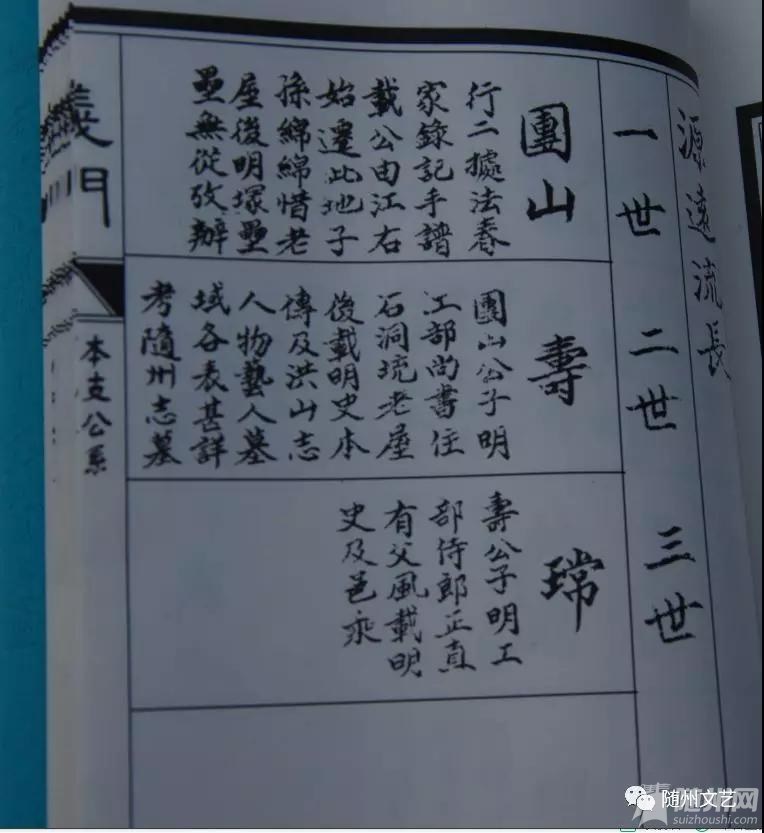 源遠流長
一世
二世
三世
團山
行二據法春
家錄記手譜
載公由江右
始遷此地子
孫綿綿惜老
屋後明塚壘
壘無從攷辦
壽
團山公子明
工部尚書住
石洞垸老屋
後載明史本
傳及洪山志
人物藝人墓
域各表甚詳
考隨州志墓
瑺
壽公子明工
部侍郎正直
有父風載明
史及邑乘
義門
本支公系
随州文艺
随州网
suizhoushi.com